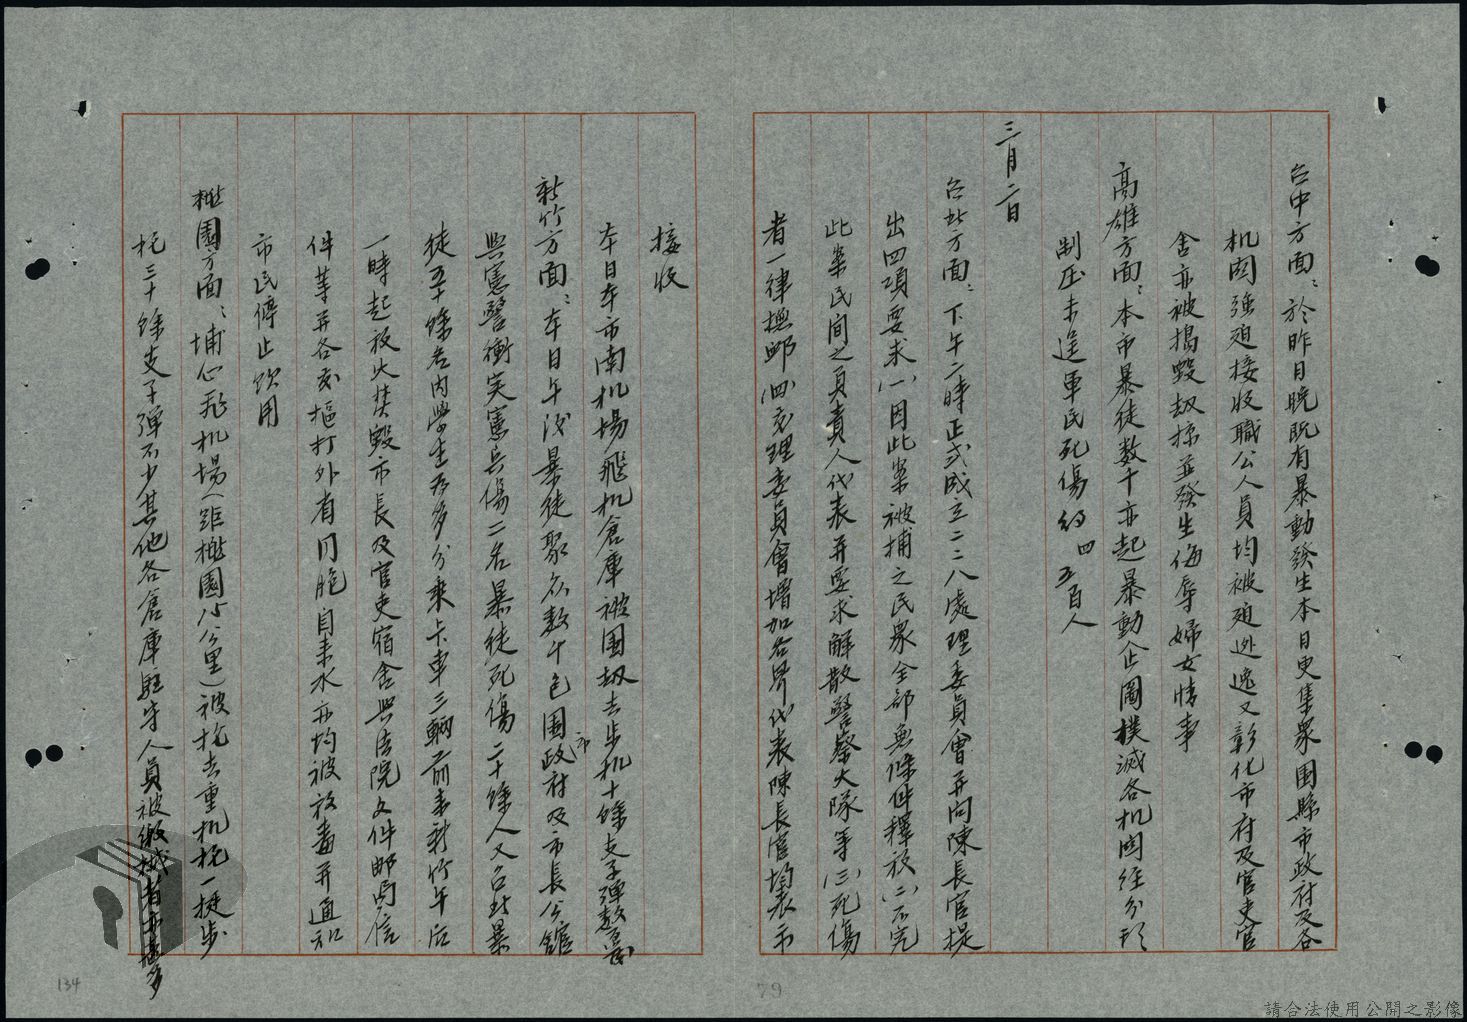 台中方面：於昨日晚既有暴動發生本日更集眾圍縣市政府及各
机関強迫接收職公人員均被迫逃逸又彰化市府及官吏官
舍亦被搗毀刼掠並發生侮辱婦女情事
高雄方面：本市暴徒数十亦起暴動企圖撲滅各机関經分
制压未逞軍民死傷約四五百人
三月二日
台北方面：下午二時正式成立二二八處理委員會并向陳長官提
出四項要求(一)因此案被捕之民眾全部無條件釋放(二)不究
此案民間之負責人代表并要求解散警察大隊等(三)死傷
者一律撫卹(四)處理委員會增加各界代表陳長官均表示
接收
本日本市南机場飛机倉庫被圍刼去步机十餘支子彈数
新竹方面：本日午後暴徒聚众数千包圍市政府及市長公舘
與憲警衝突憲兵傷二名暴徒死傷二十餘人又台北暴
徒五十餘名内學生多多分乘卡車三輛前來新竹午后
一時起放火焚毀市長及官吏宿舍與法院文件邮局信
件等并各處搗打外有同胞自来水亦均被放毒并通知
市民停止飲用
桃園方面：埔心飛机場（距桃園15公里）被抢去重机枪一挺步
枪三十餘支子彈不少其他各倉庫駐守人員被繳械者亦
134
79
請合法使用公開之影像